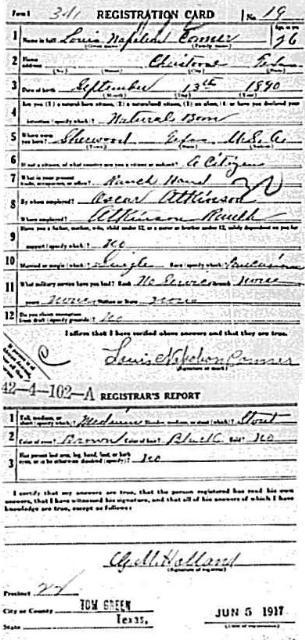 Form 1 341 REGISTRATION CARD No. 19
1 Name in full Louis Napoleon Conner Age, in yrs. 26
(Given name) (Family name)
2 Home address Christoval Texas
3 Date of birth September 13th 1890
(Month) (Day) (Year)
4 Are you (1) a natural born citizen, (2) a naturalized citizen, (3) an alien, (4) or have you declared your
intention (specify which)? Natural Born
5 Where were you born? Sherwood Texas U.S.A.
(Town) (State) (Nation)
6 If not a citizen, of what country are you a citizen or subject? A Citizen
7 What is your present trade, occupation, or office? Ranch Hand
8 By whom employed? Oscar Atkinson
Where employed? Atkinson Ranch
9 Have you a father, mother, wife, child under 12, or a sister or brother under 12, solely dependent on you for
support (specify which)? No
10 Married or single (which)? Single Race (specify which)? Caucasian
11 What military service have you had? Rank No Service branch none
years none Nation or State none
12 Do you claim exemption from draft (specify grounds)? No
I affirm that I have verified above answers and that they are true.
Louis Napoleon Conner
(Signature or mark)
42-4-102-A REGISTRAR'S REPORT
1 Tall, medium, or short (specify which)? Medium Slender, medium, or stout (which)? Stout
2 Color of eyes? Brown Color of hair? Black Bald? No
3 Has person lost arm, leg, hand, foot, or both eyes, or is he otherwise disabled (specify)? No
I certify that my answers are true, that the person registered has read his own
answers, that I have witnessed his signature, and that all of his answers of which I
have knowledge are true, except as follows:
Holland
(Signature of registrar)
Precinct 22
City or County TOM GREEN
State Texas,
JUN 5 1917
(Date of registration)